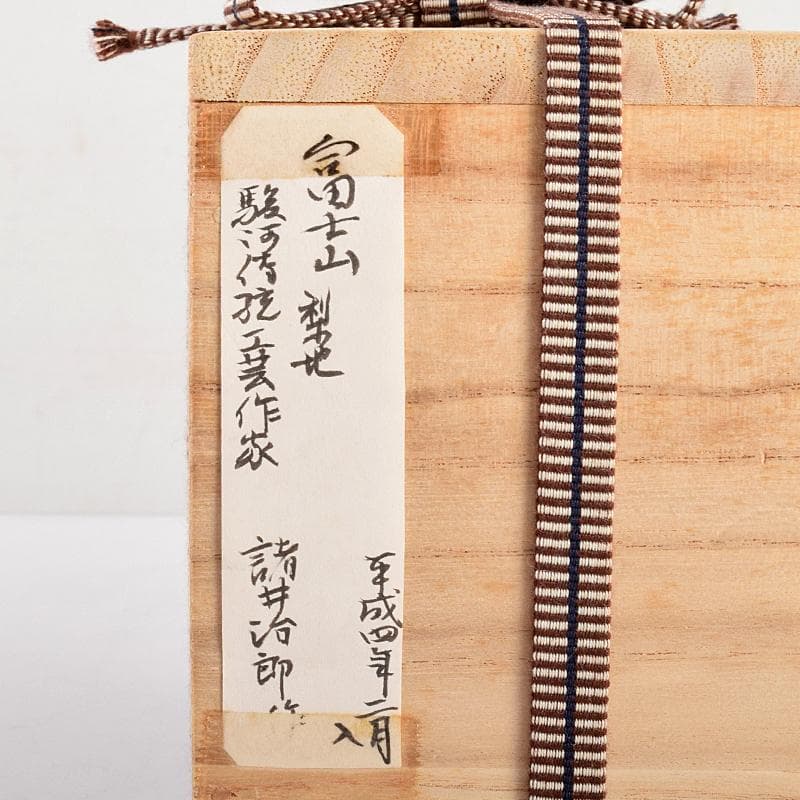 富士山 梨地
平成四年二月
入
駿河伝統工芸作家
諸井治郎 作